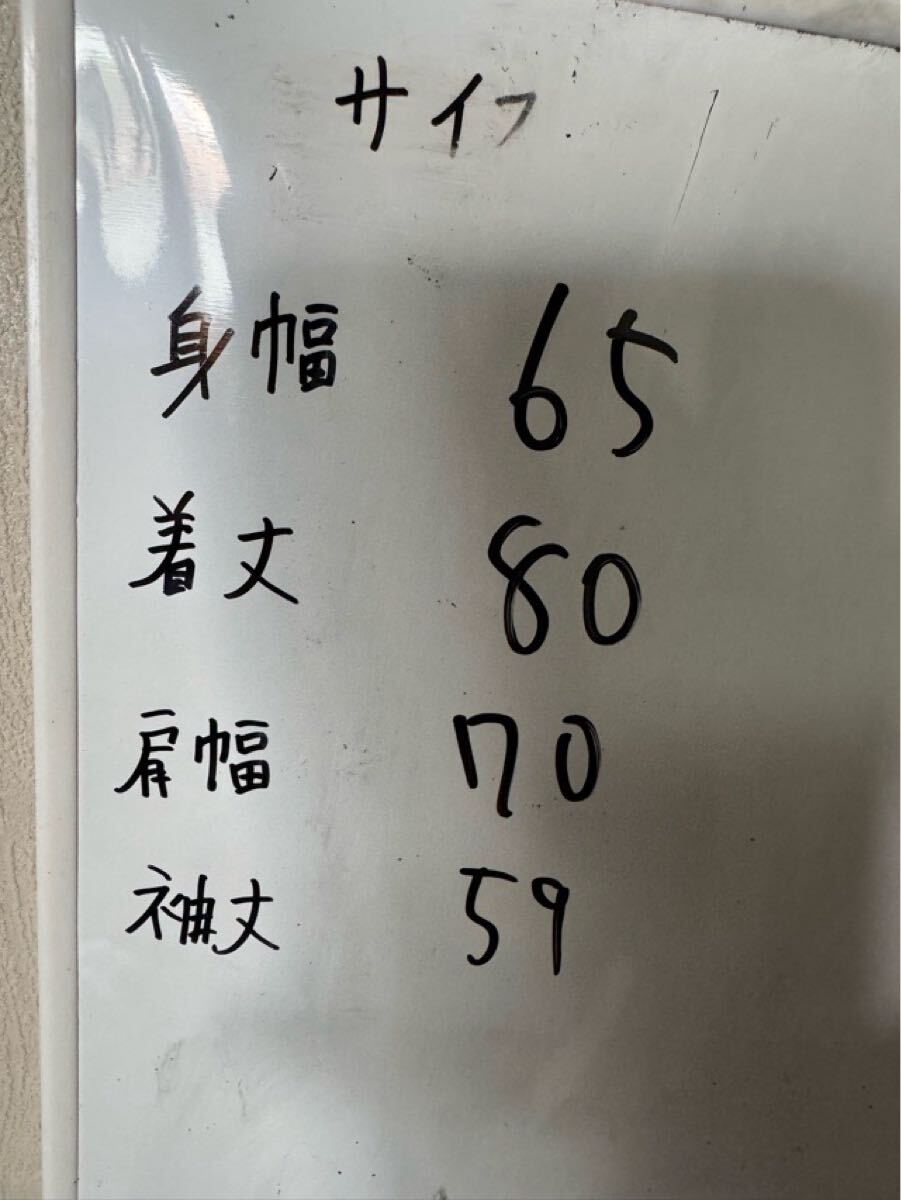 サイフ
身幅 65
着丈 80
肩幅 70
袖丈 59